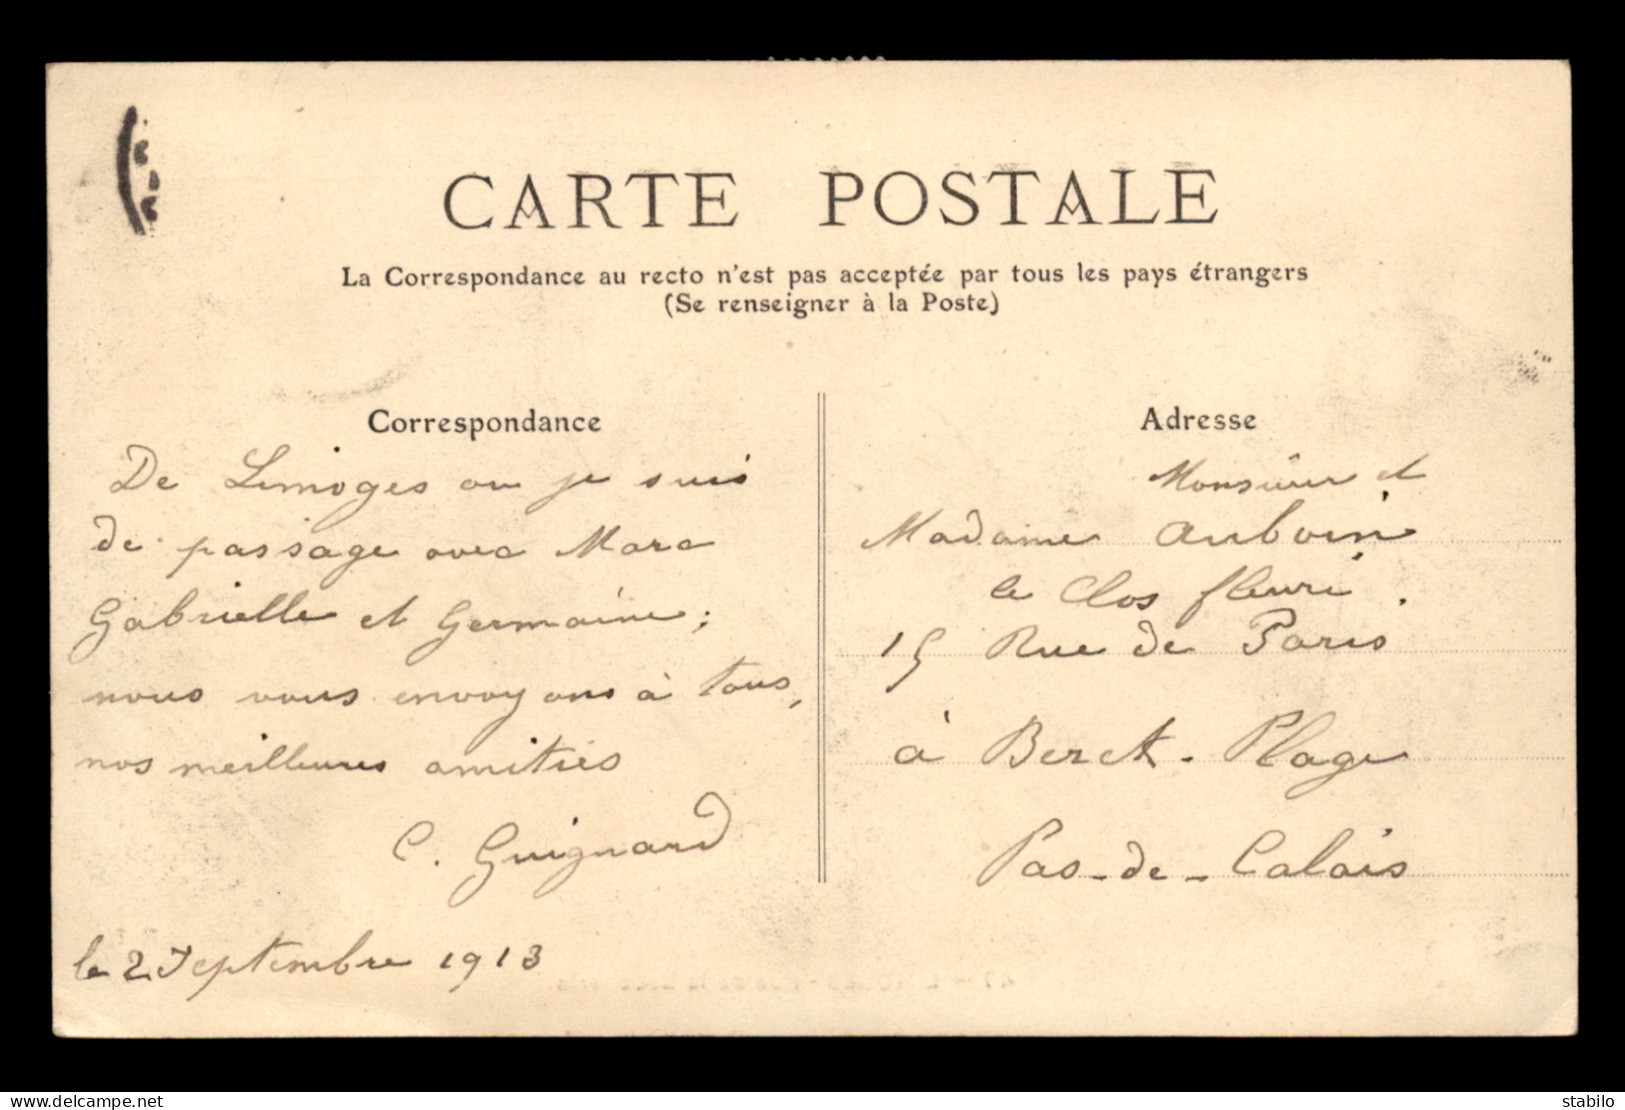 CARTE POSTALE
La Correspondance au recto n'est pas acceptée par tous les pays étrangers
(Se renseigner à la Poste)
Correspondance
De Limoges ou je suis
de passage avec Marc
Gabrielle et Germaine;
nous vous envoyons à tous,
nos meilleures amitiés
C. Guignard
le 2 Septembre 1913
Adresse
Monsieur et
Madame Auboin
le Clos fleuri.
15 Rue de Paris
à Berck-Plage
Pas-de-Calais
www.delcampe.net
stabilo